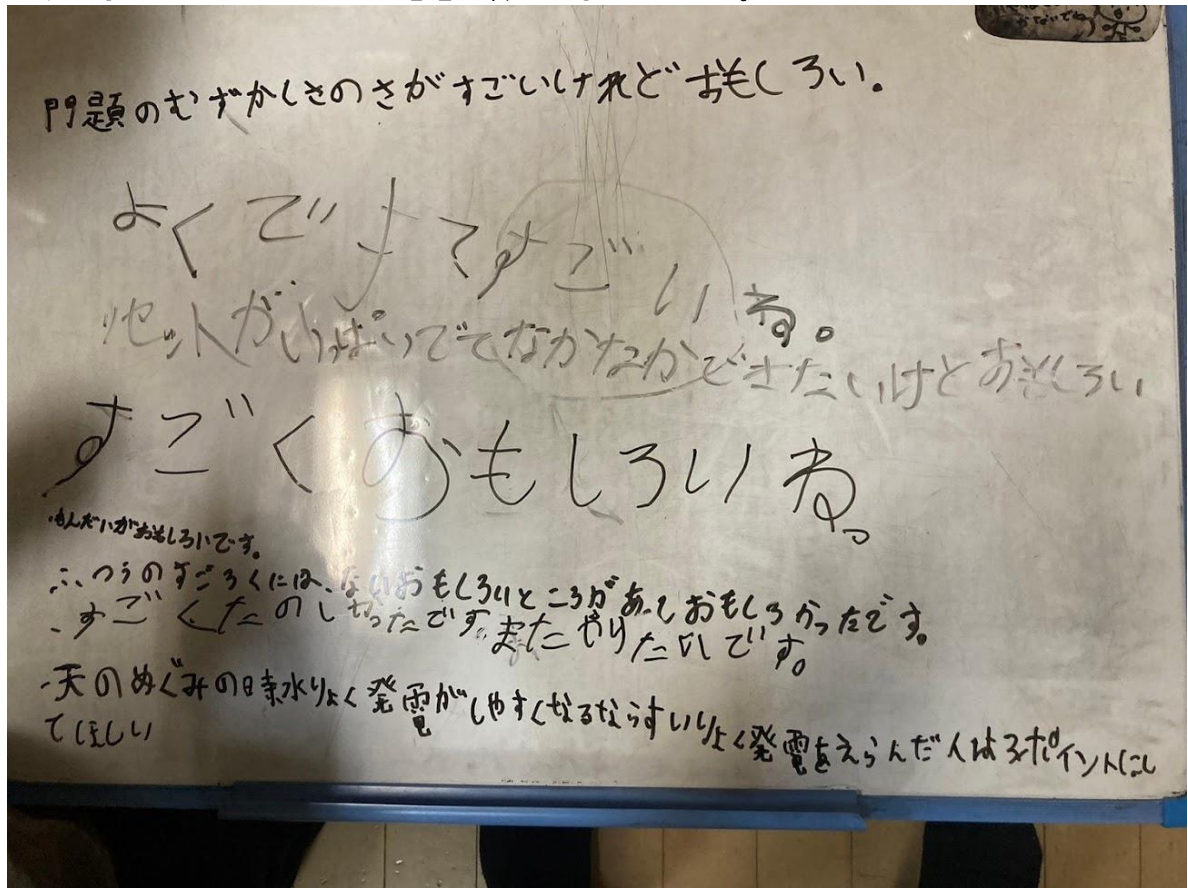 問題のむずかしさのさがすごいけれどおもしろい。
よくでメてすごいね。
リセットがいっぱいでてなかなかできないけどおもしろい
すごくおもしろいね。
・もんだいがおもしろいです。
・ふつうのすごろくには、ないおもしろいところがあっておもしろかったです。
・すごくたのしかったです。またやりたいです。
・天のめぐみの時水りょく発電がしやすくなるならすいりょく発電をえらんだ人は3ポイントにし
てほしい